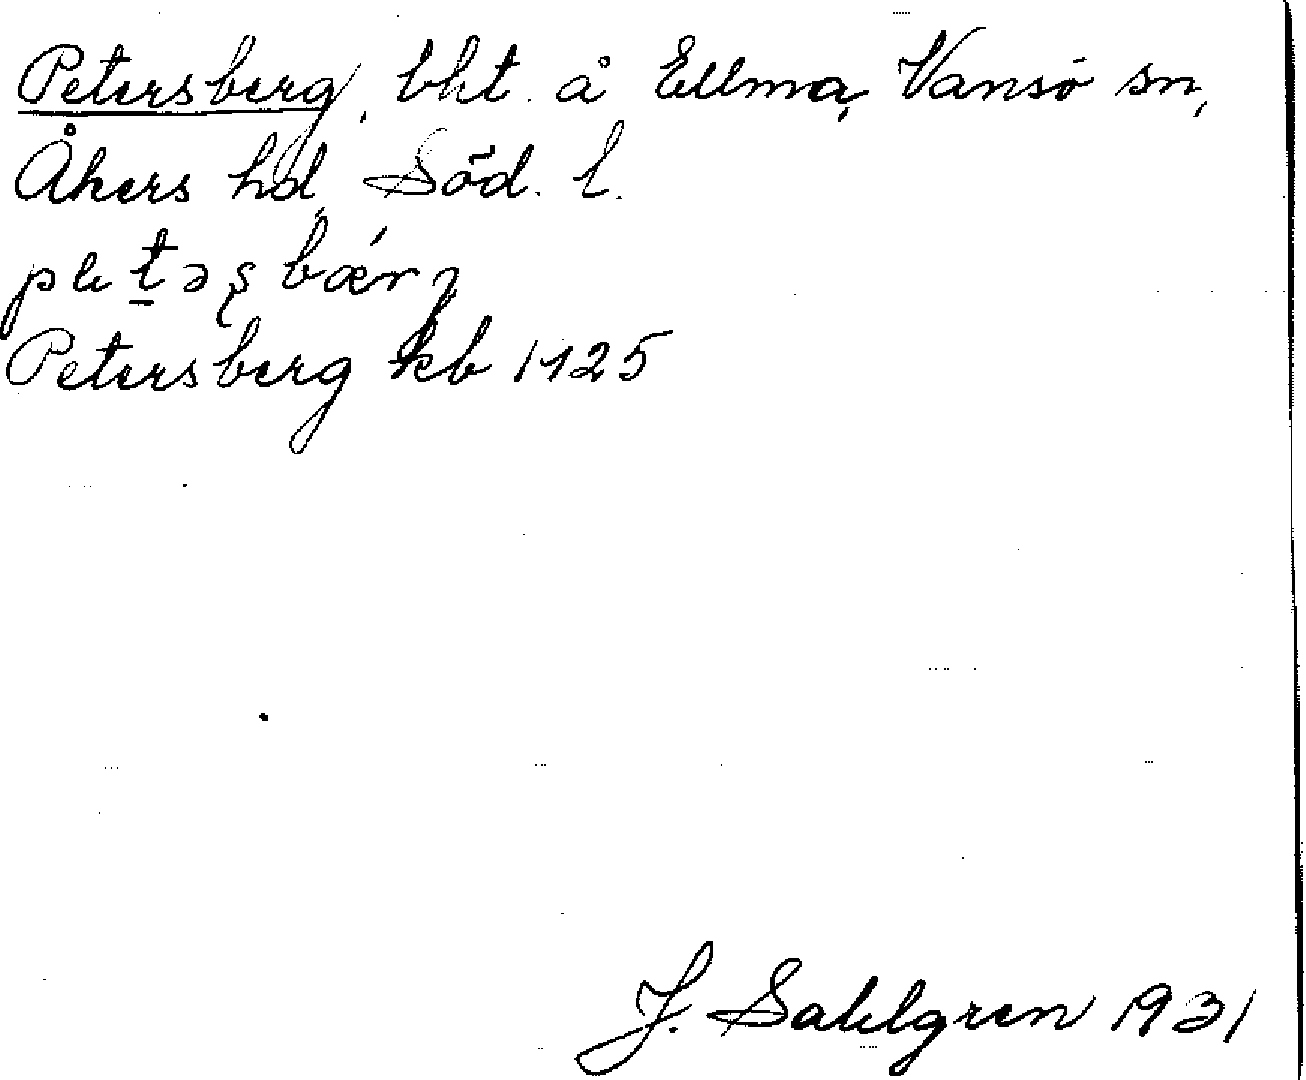 Petersberg, bht. å Ellma, Vansö sn,
Åkers hd, Söd. l.
Petersberg kb 1725
J. Sahlgren 1931